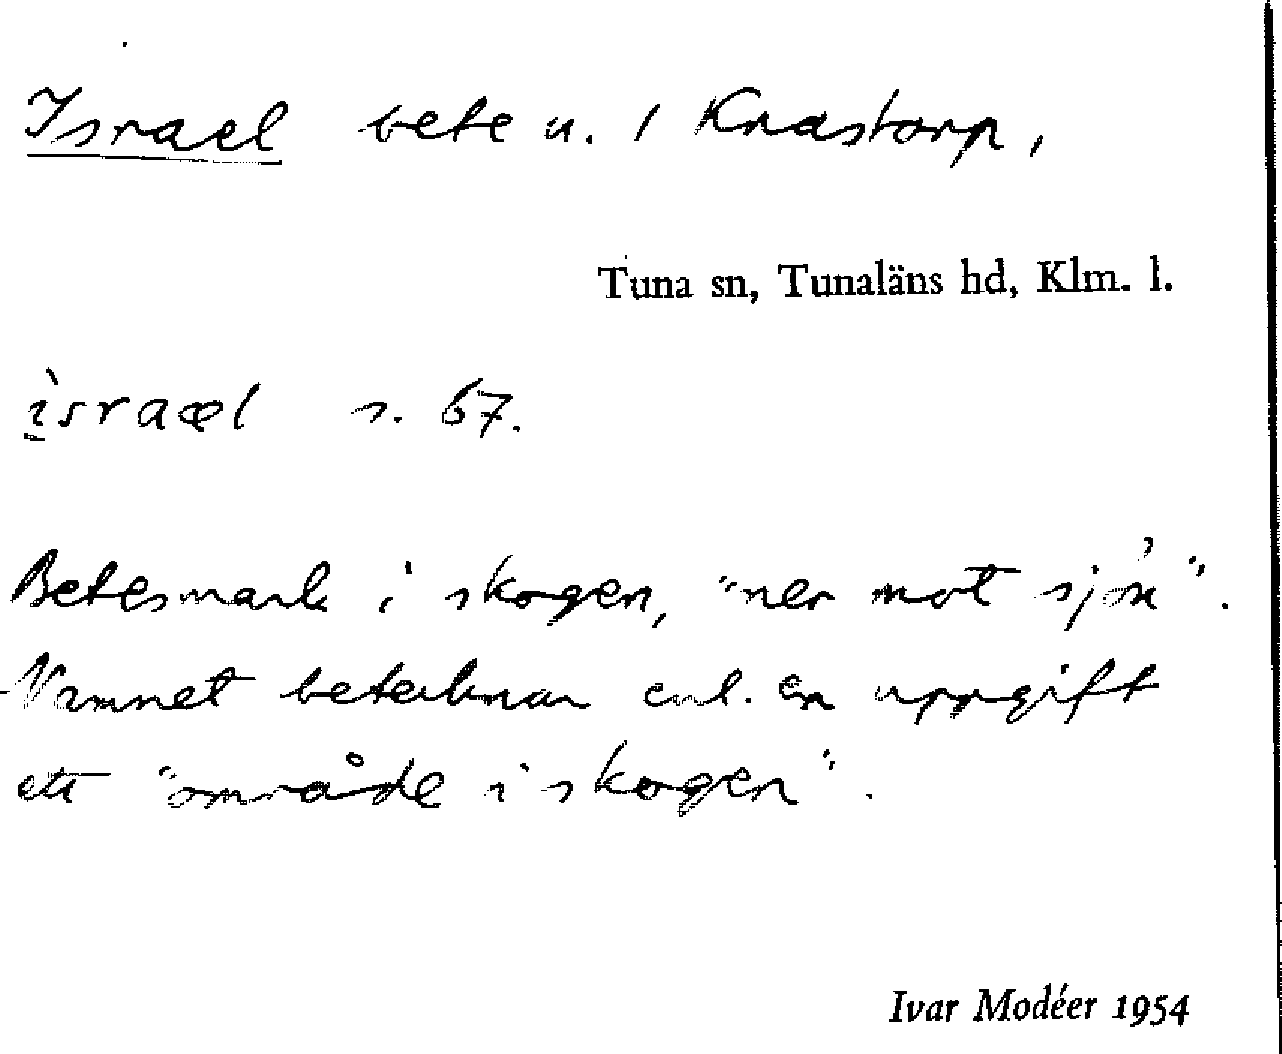 Israel bete u. / Knastorp,
Tuna sn, Tunaläns hd, Klm. l.
ìsrael s. 67.
Betesmark i skogen, "ner mot sjön".
Namnet betecknar enl. en uppgift
ett "område i skogen".
Ivar Modéer 1954